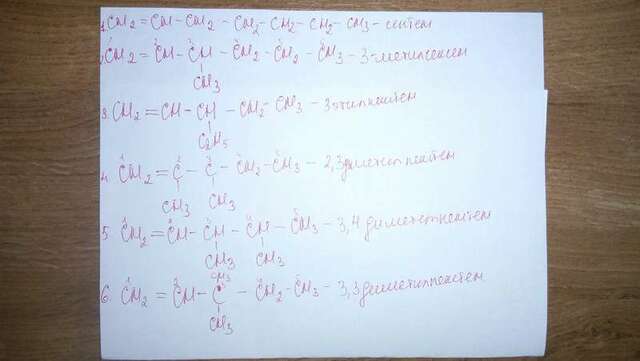 1. CH2 = CH - CH2 - CH2 - CH2 - CH2 - CH3 - гептен
2. CH2 = CH - CH - CH2 - CH2 - CH3 - 3-метилгексен
CH3
3. CH2 = CH - CH - CH2 - CH3 - 3этилпентен
C2H5
4. CH2 = C - C - CH2 - CH3 - 2,3диметилпентен
CH3 CH3
5. CH2 = CH - CH - CH - CH3 - 3,4 диметилпентен
CH3 CH3
CH3
6. CH2 = CH - C - CH2 - CH3 - 3,3диметилпентен
CH3